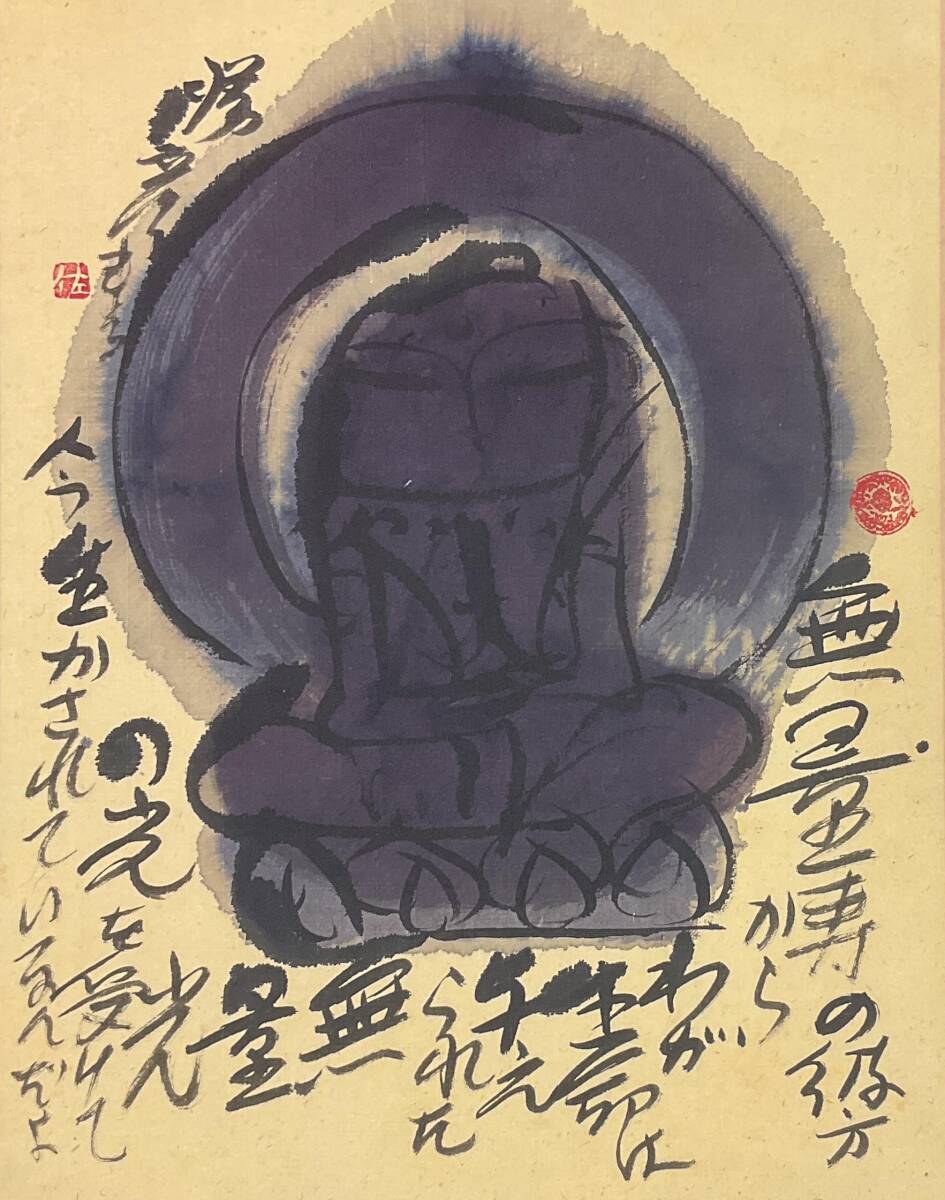 無量寿の彼方
から
わが
生命は
与え
られた
無
量
光
の光を受けて
今生かされているんだよ
佐